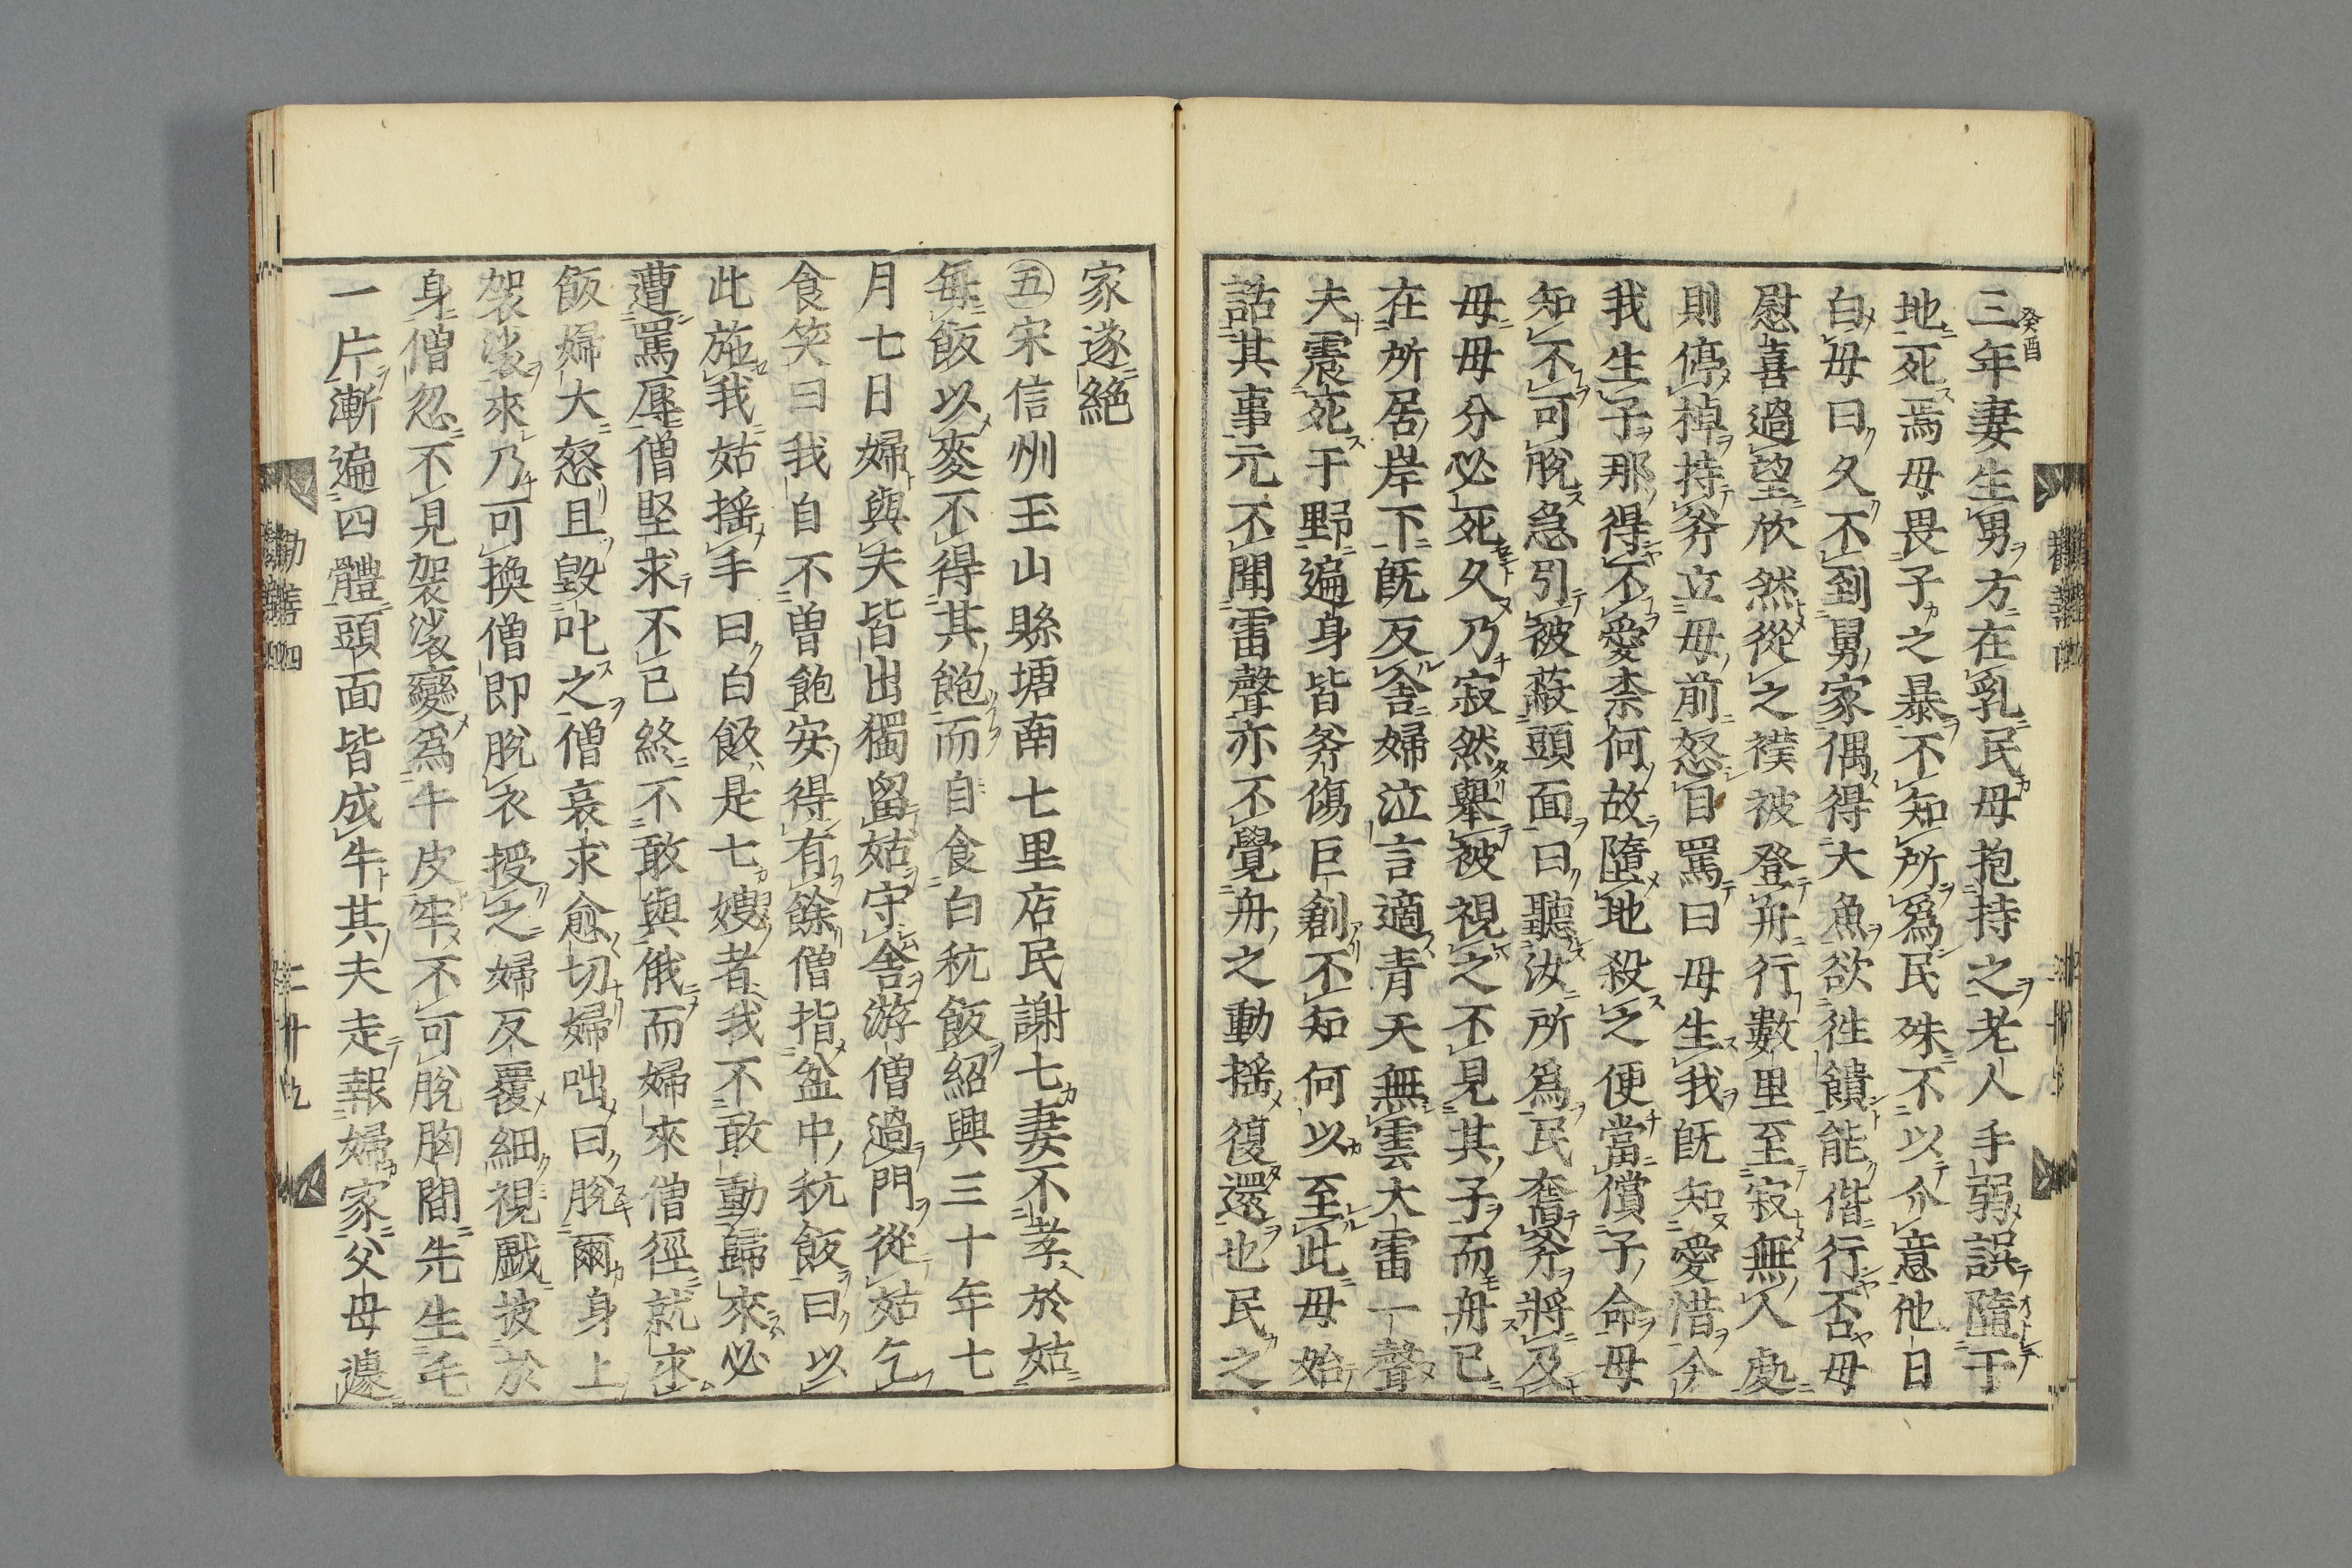 三年妻生男方在乳民母抱持之老人手弱誤墮于
癸酉
地死焉母畏子之暴不知所爲民殊不以介意他日
白母曰久不到舅家偶得大魚欲徃饋能偕行否母
慰喜過望欣然從之襆被登舟行數里至寂無人處
則停棹持斧立母前怒目罵曰母生我既知愛惜今
我生子那得不愛柰何故墮地殺之便當償子命母
知不可脫急引被蔽頭面曰聽汝所爲民奮斧將及
母母分必死久乃寂然舉被視之不見其子而舟已
在所居岸下既反舍婦泣言適青天無雲大雷一聲
夫震死于野遍身皆斧傷巨創不知何以至此母始
話其事元不聞雷聲亦不覺舟之動搖復還也民之
家遂絕
㊄宋信州玉山縣塘南七里店民謝七妻不孝於姑
每飯以麥不得其飽而自食白秔飯紹興三十年七
月七日婦與夫皆出獨留姑守舍游僧過門從姑乞
食笑曰我自不曾飽安得有餘僧指盆中秔飯曰以
此施我姑搖手曰白飯是七嫂者我不敢動歸來必
遭罵辱僧堅求不已終不敢與俄而婦來僧徑就求
飯婦大怒且毀叱之僧哀求愈切婦咄曰脫爾身上
袈裟來乃可換僧即脫衣授之婦反覆細視戲披於
身僧忽不見袈裟變爲牛皮牢不可脫胸間先生毛
一片漸遍四體頭面皆成牛其夫走報婦家父母遽
勸善四
二十九